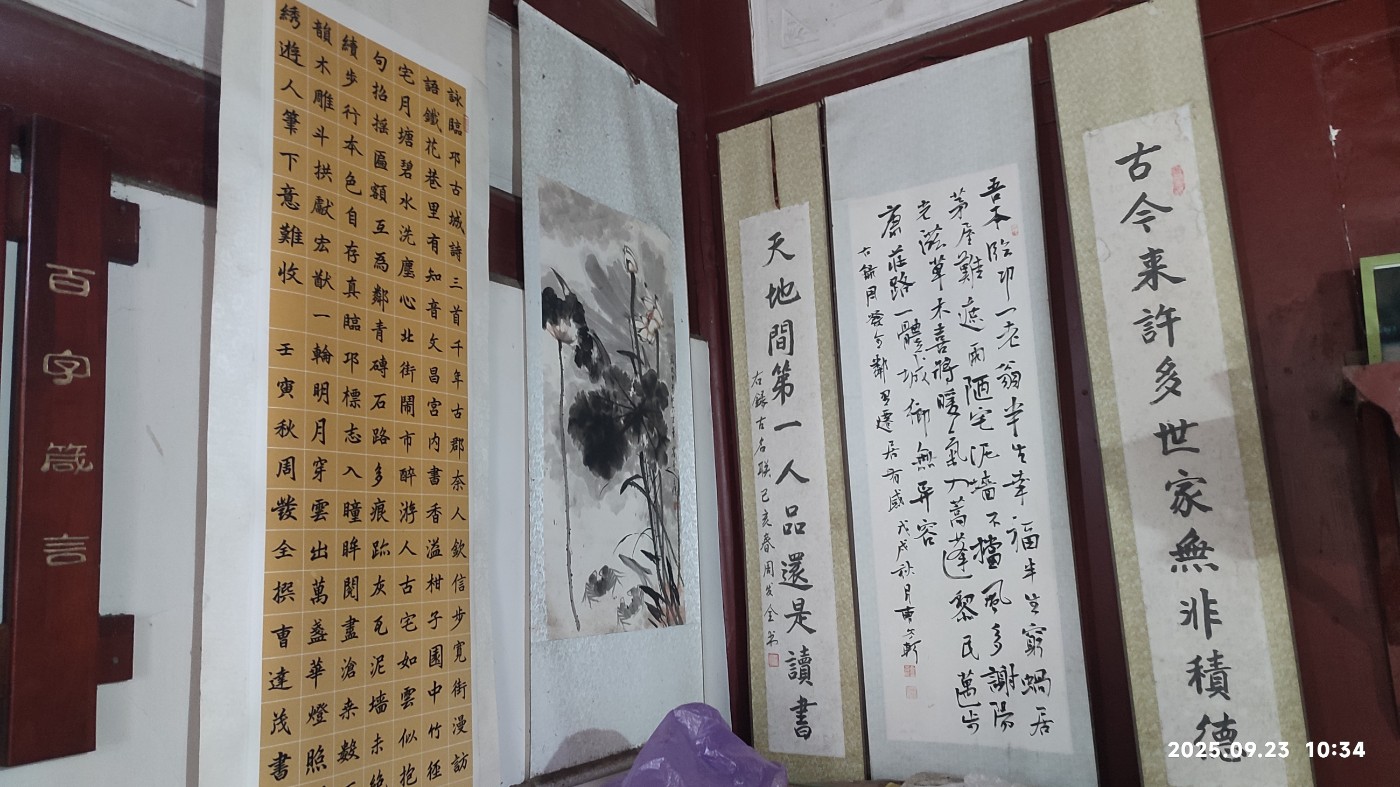 百字箴言
詠臨邛古城詩三首千年古郡奈人欽信步寬街漫訪
語鐵花巷里有知音文昌宮內書香溢柑子園中竹徑
宅月塘碧水洗塵心北街鬧市醉游人古宅如雲似抱
句招搖匾額互為鄰青磚石路多痕跡灰瓦泥墻未絕
續步行本色自存真臨邛標志入瞳眸閱盡滄桑數
韻木雕斗拱獻宏猷一輪明月穿雲出萬盞華燈照
綉遊人筆下意難收 壬寅秋周發全撰曹達茂書
古今來許多世家無非積德
吾本臨邛一老翁半生幸福半生窮蝸居
茅屋難遮雨陋宅泥墻不擋風多謝陽
光滋草木喜將暖氣入蒿蓬黎民邁步
康莊路一體城鄉無異容
右錄周發全鄰里遷居有感戊戌秋月
天地間第一人品還是讀書
右錄古名聯己亥春周發全書
2025.09.23 10:34